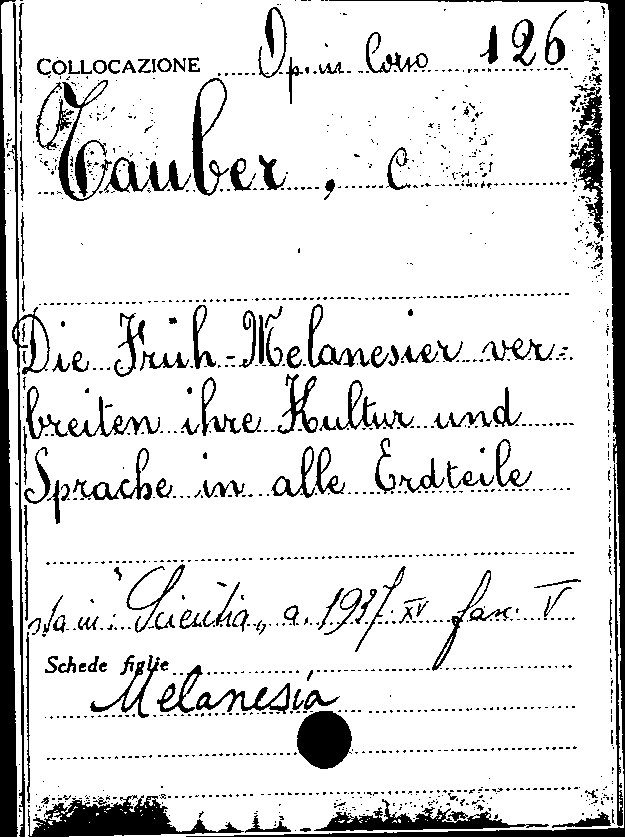 COLLOCAZIONE Op. in Corso 126
Tauber, C
Die Früh-Melanesier ver=
breiten ihre Kultur und
Sprache in alle Erdteile
sta in: "Scientia" a. 1937. XV fasc. V
Schede figlie
Melanesia